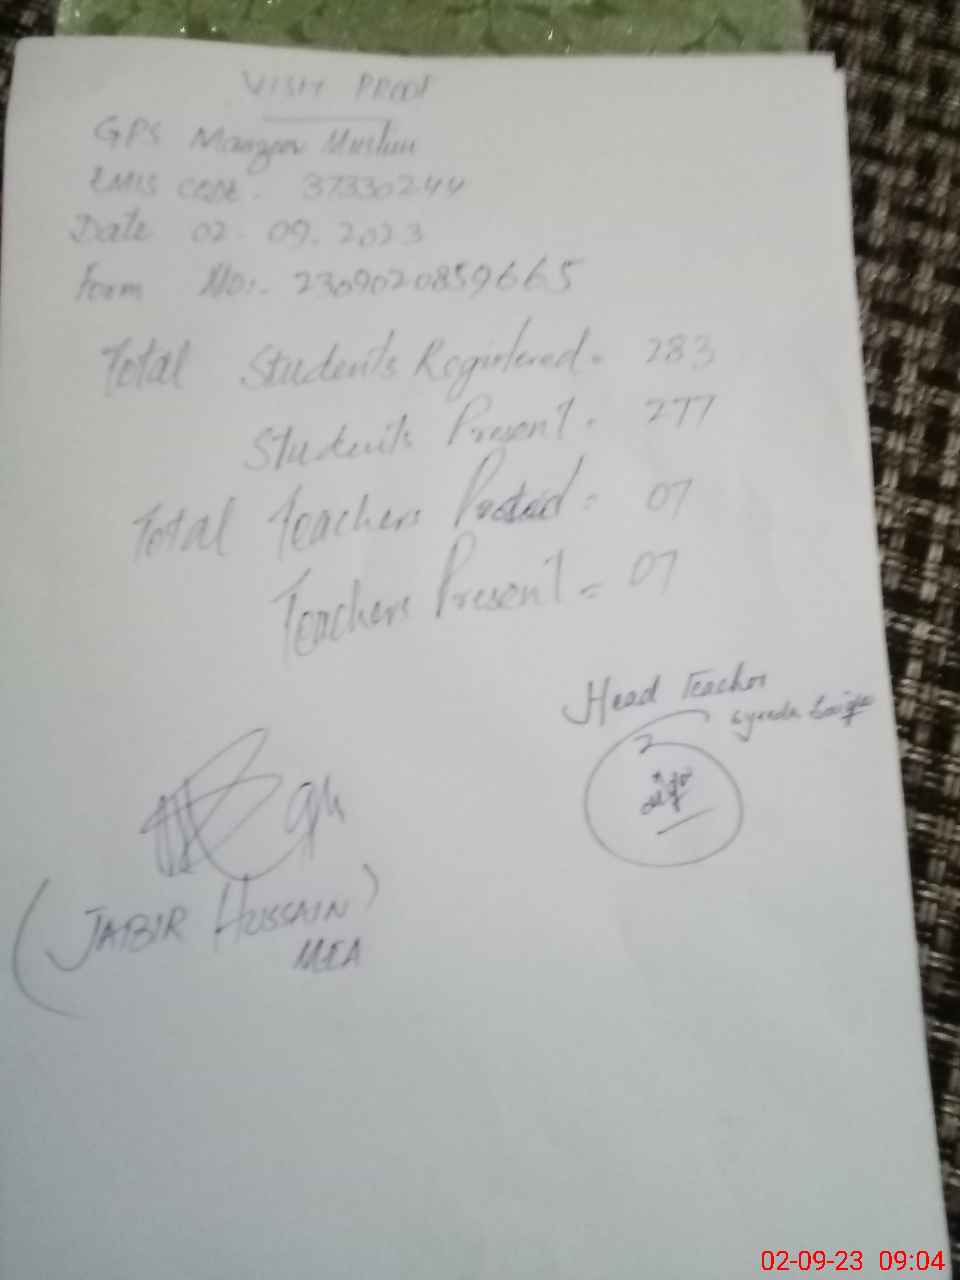 VISIT PROOF
GPS Manzoor Muslim
EMIS CODE. 37330244
Date 02. 09. 2023
Form No:. 2309020859665
Total Students Registered = 283
Students Present = 277
Total Teachers Posted = 07
Teachers Present = 07
Head Teacher
Syeda
(JABIR HUSSAIN)
MEA
02-09-23 09:04